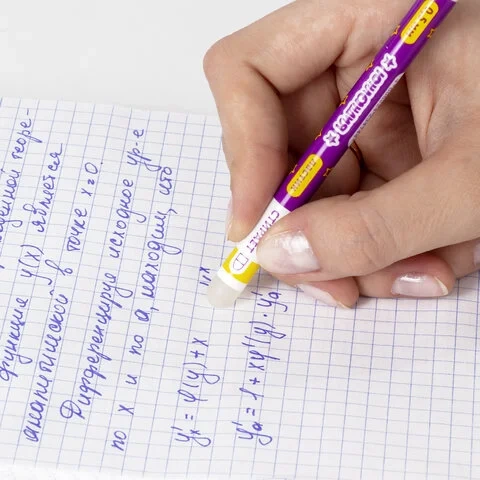 теоре
функция y(x) является
аналитической в точке x=0.
Дифференцируя исходное ур-е
по x и по a, находим, что
y'ₓ = φ(y) + x
y'ₐ = 1 + xφ'(y) · y'ₐ
СТИРАЕТ